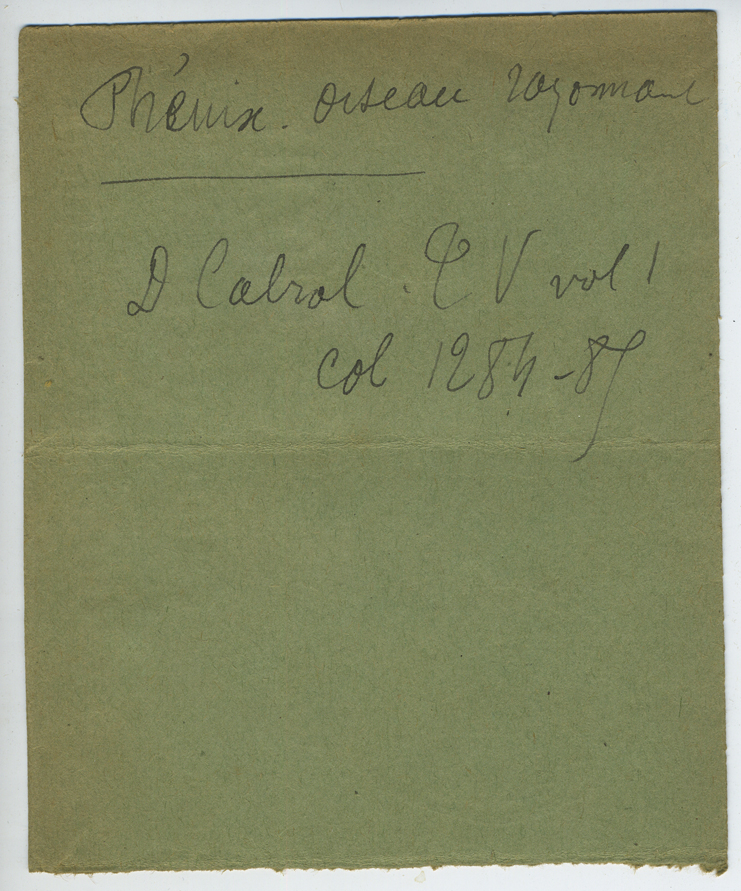 Phénix. oiseau rayonnant
D Cabrol. T V vol 1
col 1284-85